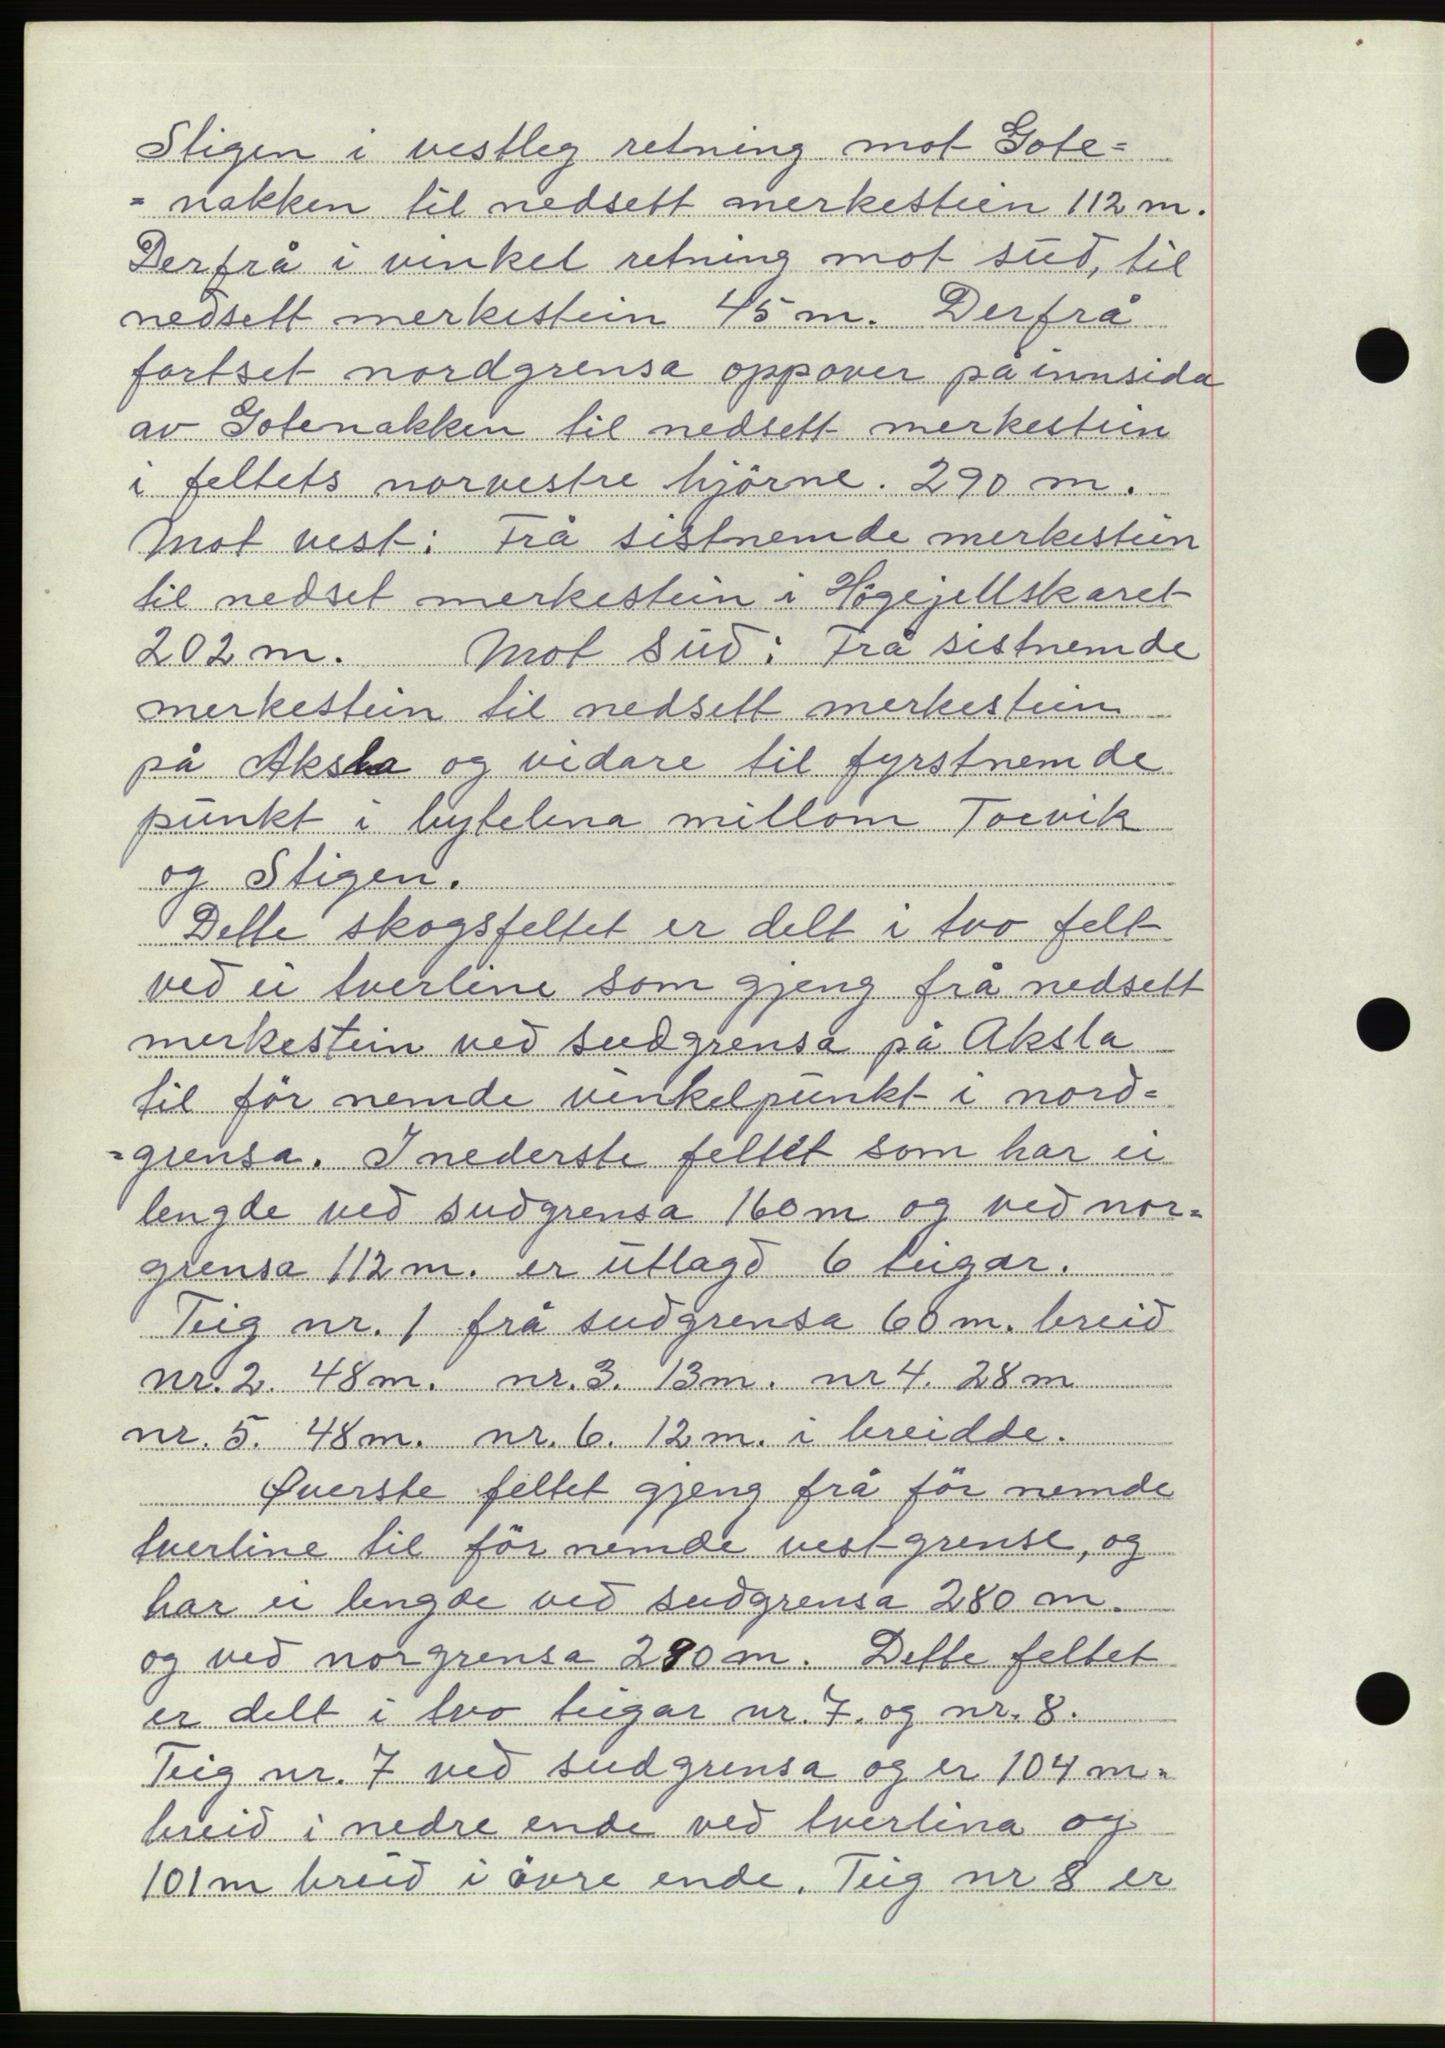 Stigen i vestleg retning mot Gote=
= nakken til nedsett merkestein 112 m.
Derfrå i vinkel retning mot sud, til
nedsett merkestein 45 m. Derfrå
fortset nordgrensa oppover på innsida
av Gotenakken til nedsett merkestein
i feltets norvestre hjörne. 290 m.
Mot vest: Frå sistnemde merkestein
til nedset merkestein i Högejellskaret
202 m. Mot sud: Frå sistnemde
merkestein til nedsett merkestein
på Aksla og vidare til fyrstnemde
punkt i bytelina millom Torvik
og Stigen.
Dette skogsfeltet er delt i tvo felt
ved ei tverline som gjeng frå nedsett
merkestein ved sudgrensa på Aksla
til för nemde vinkelpunkt i nord=
=grensa. I nederste feltet som har ei
lengde ved sudgrensa 160 m og ved nor=
grensa 112 m. er utlagd 6 teigar.
Teig nr. 1 frå sudgrensa 60 m. breid
nr. 2. 48 m. nr. 3. 13 m. nr 4. 28 m
nr. 5. 48 m. nr. 6. 12 m. i breidde.
Øverste feltet gjeng frå för nemde
tverline til för nemde vestgrense, og
har ei lengde ved sudgrensa 280 m.
og ved norgrensa 290 m. Dette feltet
er delt i tvo teigar nr. 7. og nr. 8.
Teig nr. 7 ved sudgrensa og er 104 m.
breid i nedre ende ved tverlina og
101 m breid i övre ende. Teig nr 8 er